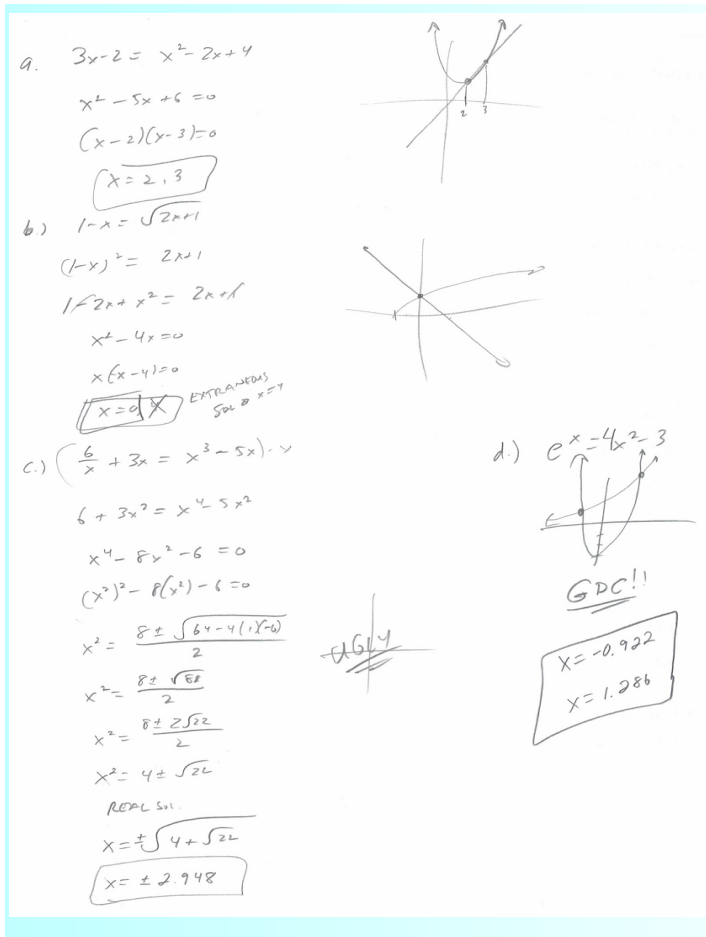 a. 3x-2 = x²-2x+4
x² - 5x + 6 = 0
(x-2)(x-3)=0
x = 2, 3
2 3
b.) 1-x = √2x+1
(1-x)² = 2x+1
1-2x+x² = 2x+1
x² - 4x = 0
x(x-4)=0
x = 0, 4
EXTRANEOUS
SOL @ x=4
c.) (6/x + 3x = x³ - 5x)·x
6 + 3x² = x⁴ - 5x²
x⁴ - 8x² - 6 = 0
(x²)² - 8(x²) - 6 = 0
x² = 8 ± √64-4(1)(-6) / 2
x² = 8 ± √88 / 2
x² = 8 ± 2√22 / 2
x² = 4 ± √22
REAL SOL.
x = ±√4+√22
x = ± 2.948
UGLY
d.) eˣ = 4x² - 3
GDC!!
x = -0.922
x = 1.286